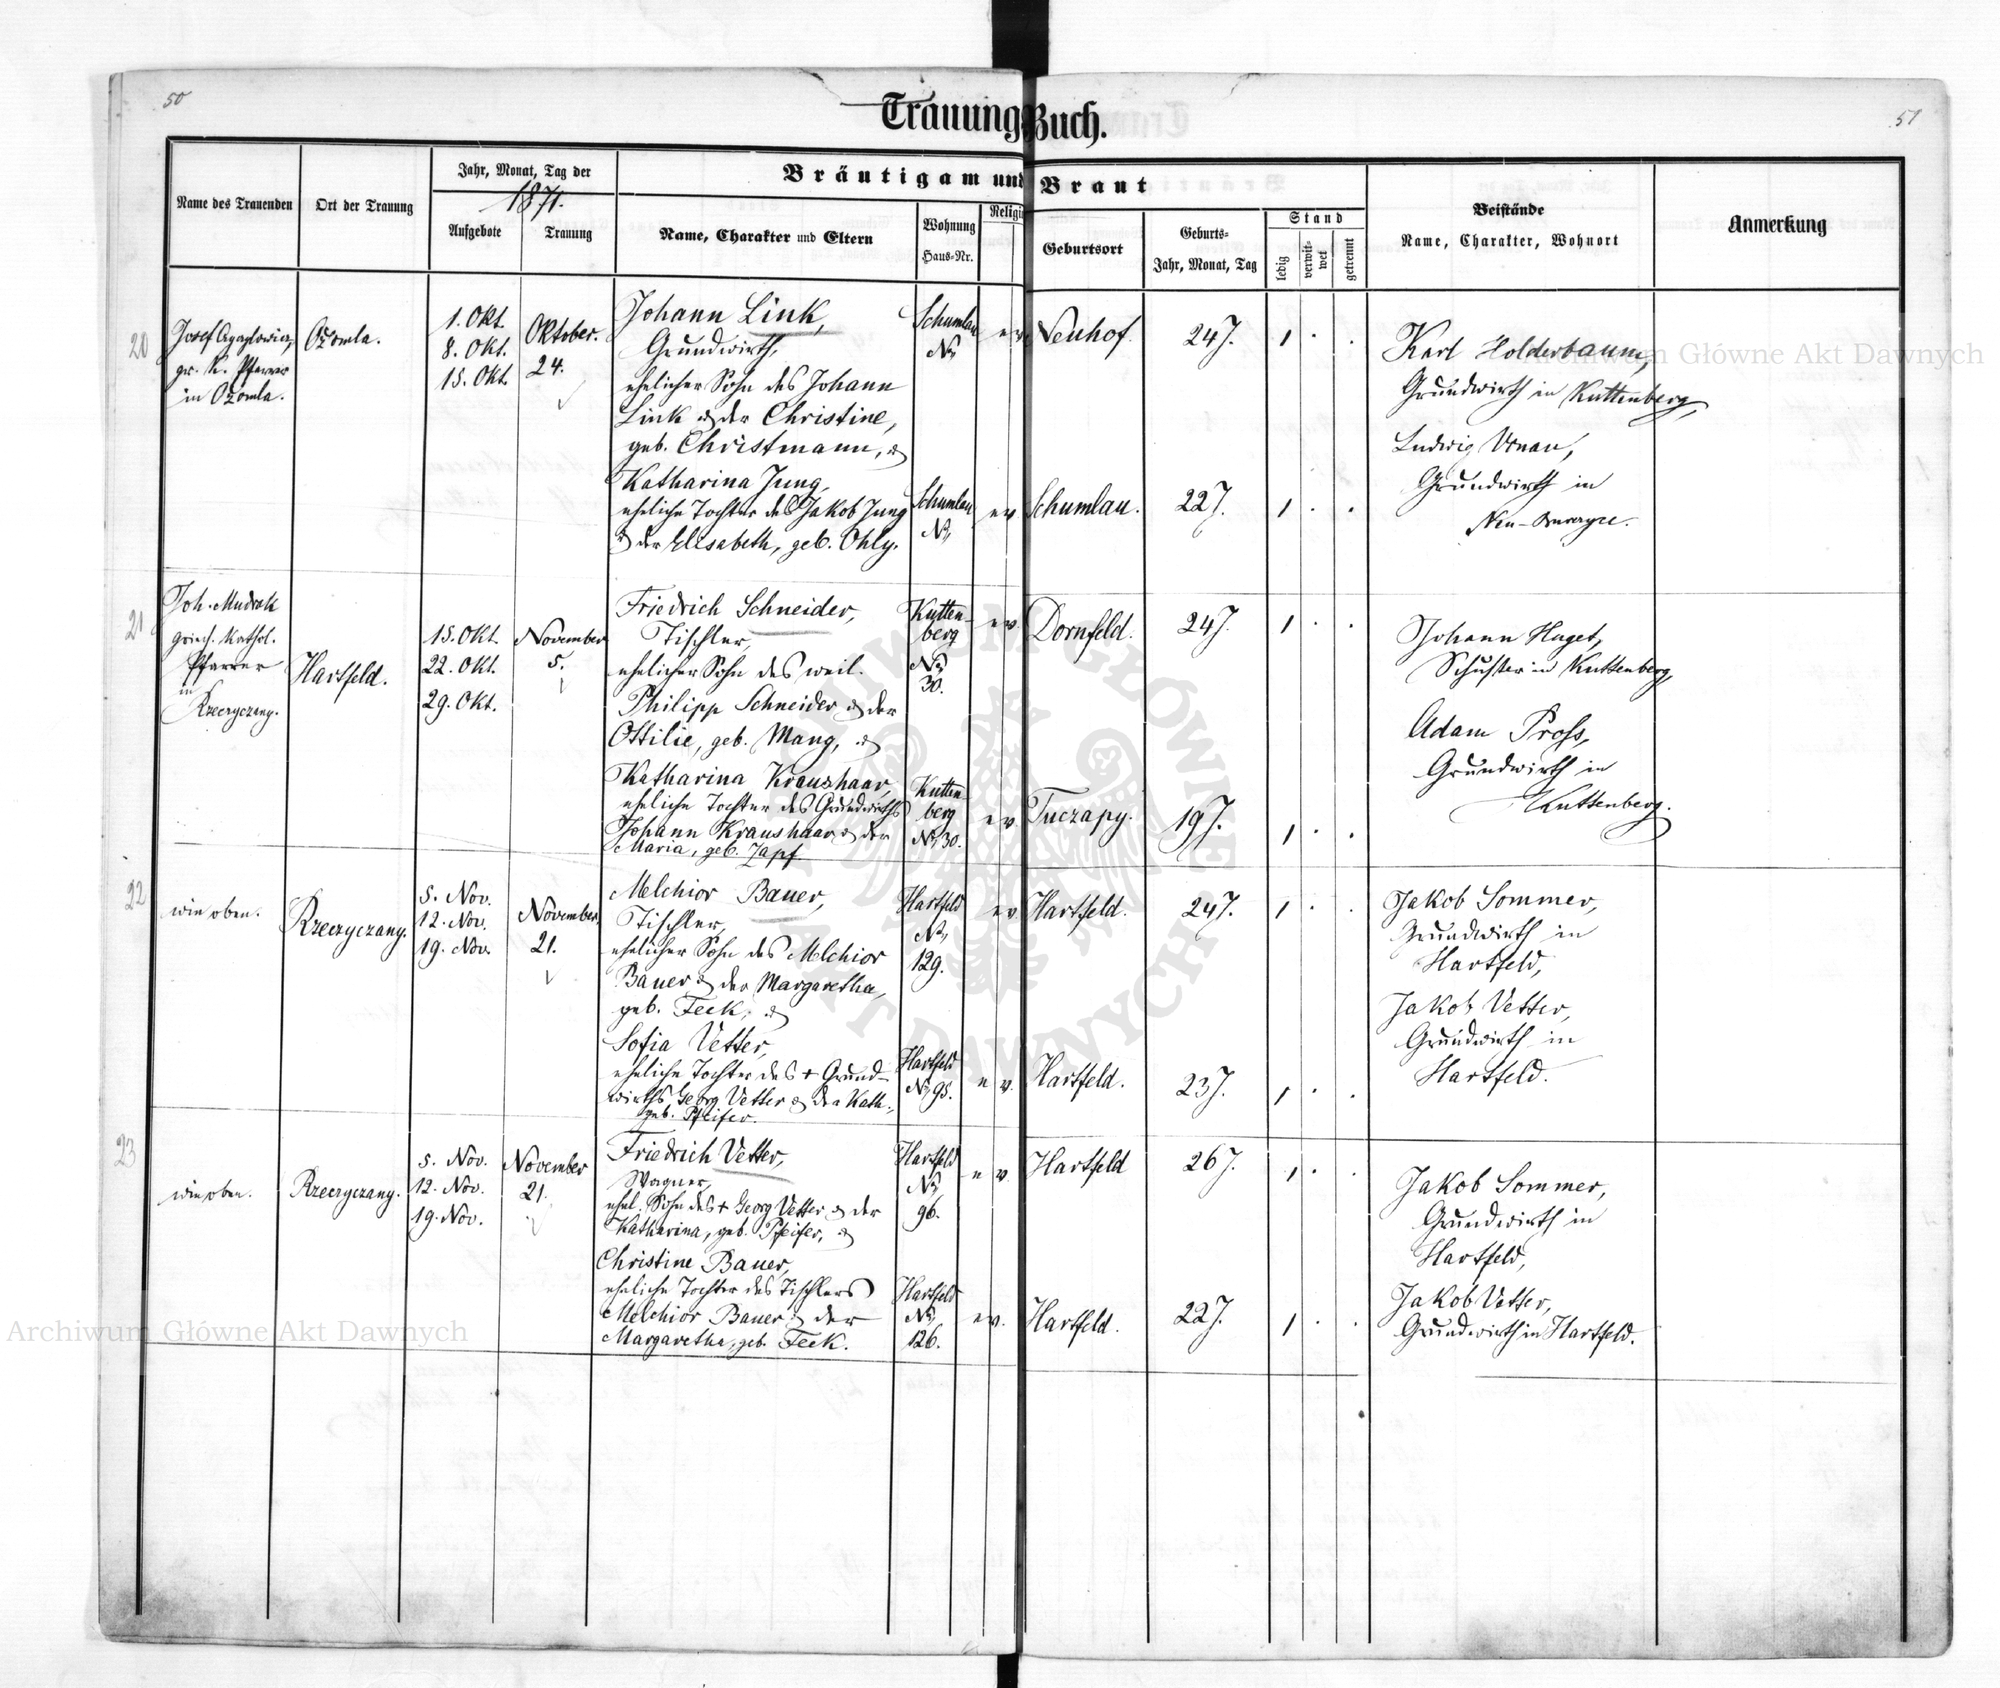 50
51
Trauungs-Buch.
Name des Trauenden
Ort der Trauung
Jahr, Monat, Tag der
1871.
Aufgebote
Trauung
Bräutigam und Braut
Name, Charakter und Eltern
Wohnung
Haus-Nr.
Religi
Geburtsort
Geburts-
Jahr, Monat, Tag
Stand
ledig
verwit-
wet
getrennt
Beistände
Name, Charakter, Wohnort
Anmerkung
20
Josef
gr. K. Pfarrer
in Ożomla.
Ożomla.
1. Okt.
8. Okt.
15. Okt.
Oktober.
24.
Johann Link,
Grundwirth,
ehelicher Sohn des Johann
Link & der Christine,
geb. Christmann, &
Schumlau
No
ev.
Neuhof
24 J.
1 . .
Katharina Jung,
eheliche Tochter des Jakob Jung
& der Elisabeth, geb. Ohly.
Schumlau
No
ev.
Schumlau.
22 J.
1 . .
Karl Holderbaum,
Grundwirth in Kuttenberg,
Ludwig
Grundwirth in
21
Joh. Mudrak
griech. kathol.
Pfarrer
in
Rzeczyczany.
Hartfeld.
15. Okt.
22. Okt.
29. Okt.
November
5.
Friedrich Schneider,
Tischler,
ehelicher Sohn des weil.
Philipp Schneider & der
Ottilie, geb. Mang, &
Kutten-
berg
No
30.
ev.
Dornfeld.
24 J.
1 . .
Katharina Kraushaar,
eheliche Tochter des Grundwirths
Johann Kraushaar & der
Maria, geb. Zapf.
Kutten-
berg
No 30.
ev.
Tuczapy.
19 J.
1 . .
Johann Huget,
Schuster in Kuttenberg,
Adam Pross,
Grundwirth in
Kuttenberg.
22
wie oben.
Rzeczyczany.
5. Nov.
12. Nov.
19. Nov.
November
21.
Melchior Bauer,
Tischler,
ehelicher Sohn des Melchior
Bauer & der Margaretha,
geb. Feck, &
Hartfeld
No
129.
ev.
Hartfeld.
24 J.
1 . .
Sofia Vetter,
eheliche Tochter des + Grund-
wirths Georg Vetter & der Kath.,
geb. Pfeifer.
Hartfeld
No 95.
ev.
Hartfeld.
23 J.
1 . .
Jakob Sommer,
Grundwirth in
Hartfeld,
Jakob Vetter,
Grundwirth in
Hartfeld.
23
wie oben.
Rzeczyczany.
5. Nov.
12. Nov.
19. Nov.
November
21.
Friedrich Vetter,
Wagner,
ehel. Sohn des + Georg Vetter & der
Katharina, geb. Pfeifer, &
Hartfeld
No
96.
ev.
Hartfeld
26 J.
1 . .
Christine Bauer,
eheliche Tochter des Tischlers
Melchior Bauer & der
Margaretha, geb. Feck.
Hartfeld
No
126.
ev.
Hartfeld.
22 J.
1 . .
Jakob Sommer,
Grundwirth in
Hartfeld,
Jakob Vetter,
Grundwirth in Hartfeld.
Archiwum Główne Akt Dawnych
Archiwum Główne Akt Dawnych
ARCHIWUM GŁÓWNE AKT DAWNYCH